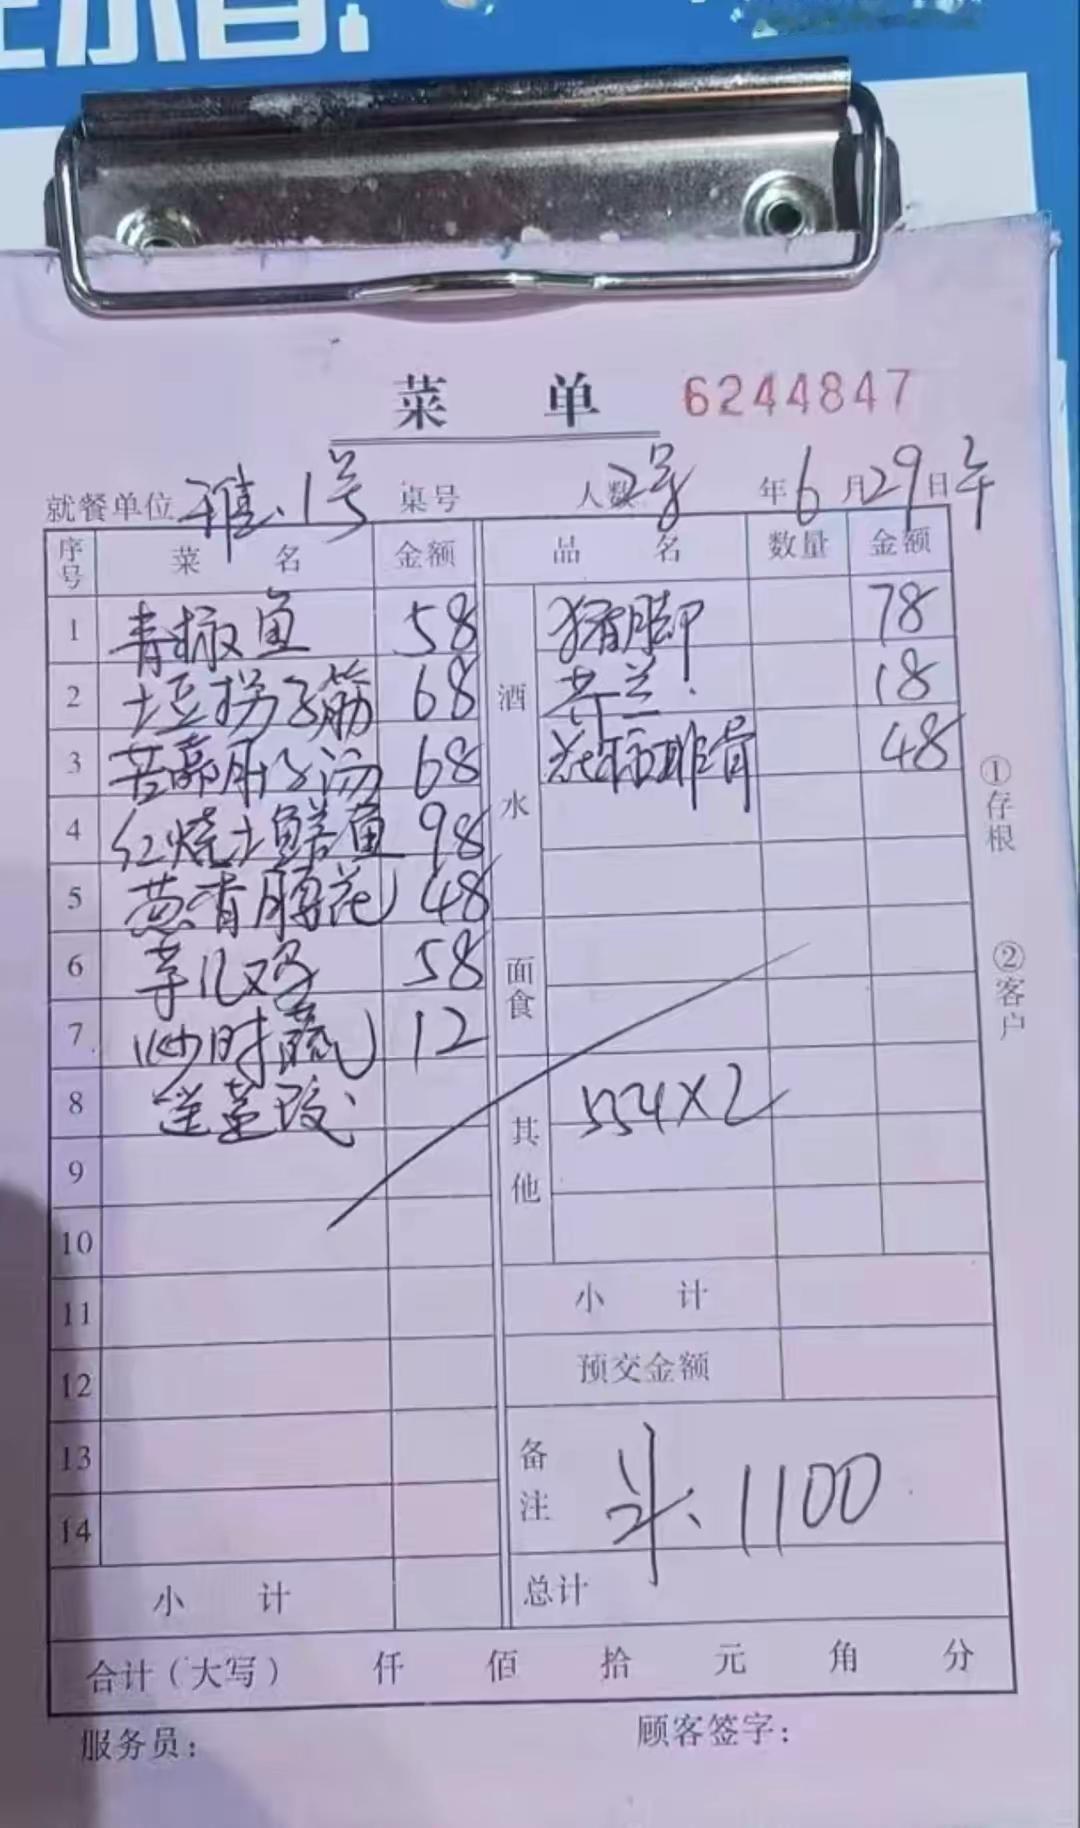 菜 单 6244847
就餐单位 雅、1号 桌号 人数 2号 年 6 月 29 日 午
序号 菜 名 金额 品 名 数量 金额
1 青椒鱼 58 酒水 猪脚 78
2 土豆拐子筋 68 芥兰 18
3 苦 肚子汤 68 排骨 48
4 红烧土 鱼 98
5 葱香 花 48
6 芋儿鸡 58 面食
7 炒时蔬 12
8 送
9 其他 554×2
10
11 小 计
12 预交金额
13 备注 斗、1100
14
小 计 总计
合计（大写） 仟 佰 拾 元 角 分
服务员： 顾客签字：
①存根
②客户